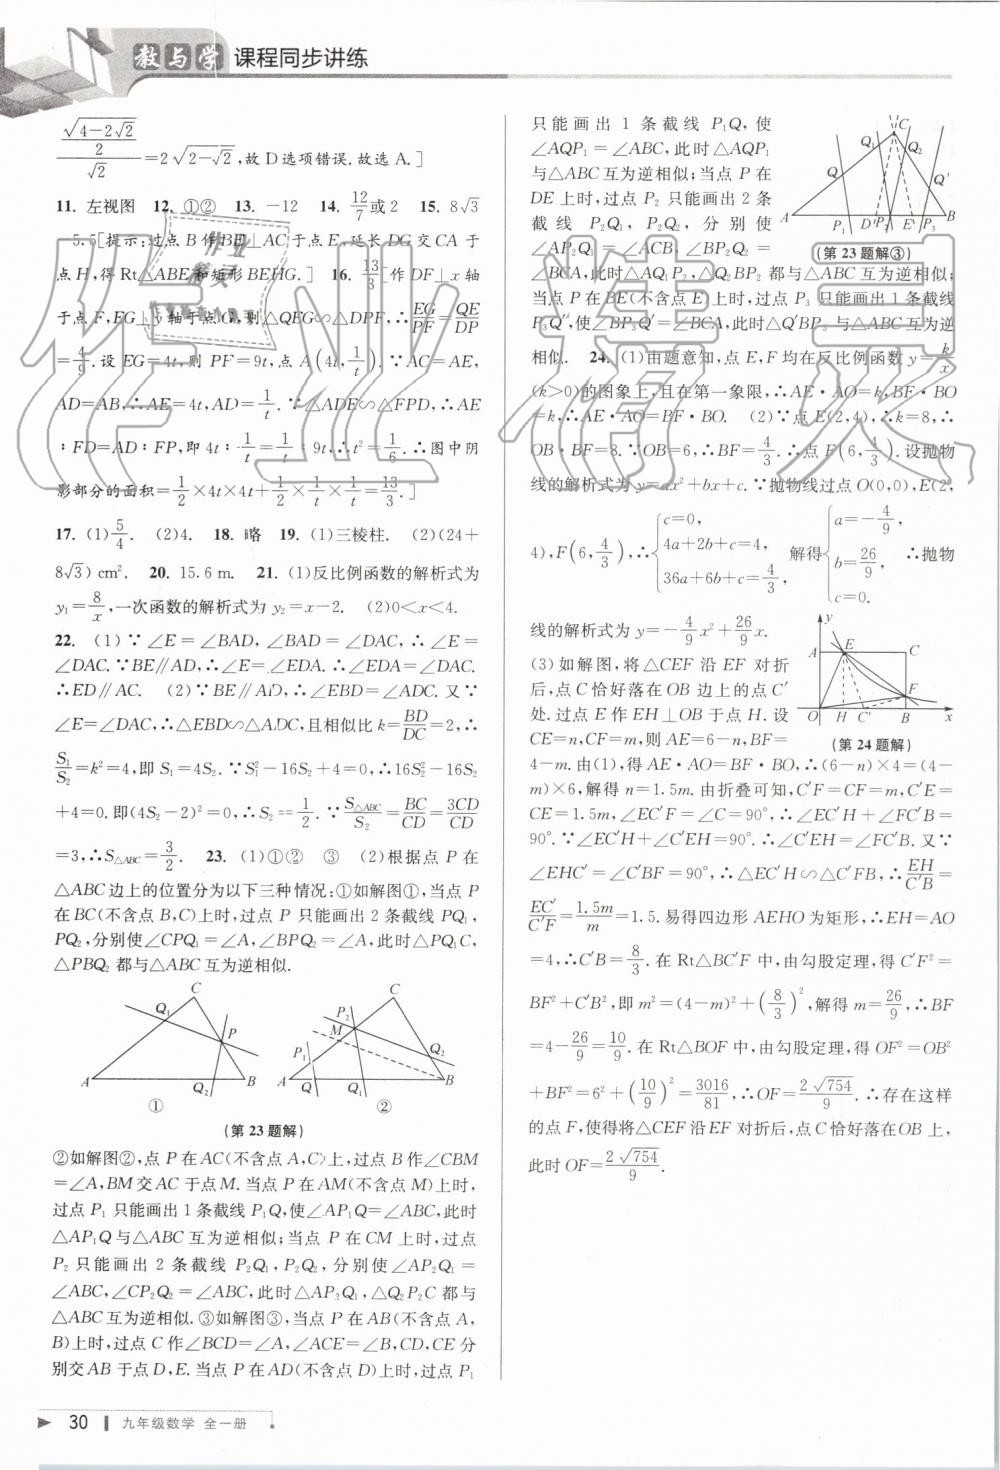 教与学 课程同步讲练
√(4-2√2)/2 / √2 =2√(2-√2),故 D 选项错误.故选 A.]
11. 左视图 12. ①② 13. -12 14. 12/7或 2 15. 8√3
5.5[提示:过点 B 作 BE⊥AC 于点 E,延长 DG 交 CA 于
点 H,得 Rt△ABE 和矩形 BEHG.] 16. 13/3[作 DF⊥x 轴
于点 F,EG⊥y 轴于点 G,则△QEG∽△DPF,∴EG/PF=QE/DP
=4/9.设 EG=4t,则 PF=9t,点 A(4t,1/t).∵AC=AE,
AD=AB,∴AE=4t,AD=1/t.∵△ADE∽△FPD,∴AE
:FD=AD:FP,即 4t:1/t=1/t:9t,∴t²=1/6.∴图中阴
影部分的面积=1/2×4t×4t+1/2×1/t×1/t=13/3.]
17. (1)5/4. (2)4. 18. 略 19. (1)三棱柱. (2)(24+
8√3) cm². 20. 15.6 m. 21. (1)反比例函数的解析式为
y₁=8/x,一次函数的解析式为 y₂=x-2. (2)0<x<4.
22. (1)∵∠E=∠BAD,∠BAD=∠DAC,∴∠E=
∠DAC.∵BE∥AD,∴∠E=∠EDA.∴∠EDA=∠DAC.
∴ED∥AC. (2)∵BE∥AD,∴∠EBD=∠ADC.又∵
∠E=∠DAC,∴△EBD∽△ADC,且相似比 k=BD/DC=2,∴
S₁/S₂=k²=4,即 S₁=4S₂.∵S₁²-16S₂+4=0,∴16S₂²-16S₂
+4=0.即(4S₂-2)²=0,∴S₂=1/2.∵S△ABC/S₂=BC/CD=3CD/CD
=3,∴S△ABC=3/2. 23. (1)①② ③ (2)根据点 P 在
△ABC 边上的位置分为以下三种情况:①如解图①,当点 P
在 BC(不含点 B,C)上时,过点 P 只能画出 2 条截线 PQ₁,
PQ₂,分别使∠CPQ₁=∠A,∠BPQ₂=∠A,此时△PQ₁C,
△PBQ₂ 都与△ABC 互为逆相似.
C
Q₁
P
A
Q₂
B
①
C
P₂
M
P₁
Q₂
A
Q
Q₁
B
②
(第 23 题解)
②如解图②,点 P 在 AC(不含点 A,C)上,过点 B 作∠CBM
=∠A,BM 交 AC 于点 M.当点 P 在 AM(不含点 M)上时,
过点 P₁ 只能画出 1 条截线 P₁Q,使∠AP₁Q=∠ABC,此时
△AP₁Q 与△ABC 互为逆相似;当点 P 在 CM 上时,过点
P₂ 只能画出 2 条截线 P₂Q₁,P₂Q₂,分别使∠AP₂Q₁=
∠ABC,∠CP₂Q₂=∠ABC,此时△AP₂Q₁,△Q₂P₂C 都与
△ABC 互为逆相似.③如解图③,当点 P 在 AB(不含点 A,
B)上时,过点 C 作∠BCD=∠A,∠ACE=∠B,CD,CE 分
别交 AB 于点 D,E.当点 P 在 AD(不含点 D)上时,过点 P₁
只能画出 1 条截线 P₁Q,使
∠AQP₁=∠ABC,此时△AQP₁
与△ABC 互为逆相似;当点 P 在
DE 上时,过点 P₂ 只能画出 2 条
截线 P₂Q₁,P₂Q₂,分别使
∠AP₂Q₁=∠ACB,∠BP₂Q₂=
∠BCA,此时△AQ₁P₂,△Q₂BP₂ 都与△ABC 互为逆相似;
当点 P 在 BE(不含点 E)上时,过点 P₃ 只能画出 1 条截线
P₃Q′,使∠BP₃Q′=∠BCA,此时△Q′BP₃ 与△ABC 互为逆
相似. 24. (1)由题意知,点 E,F 均在反比例函数 y=k/x
(k>0)的图象上,且在第一象限,∴AE·AO=k,BF·BO
=k,∴AE·AO=BF·BO. (2)∵点 E(2,4),∴k=8,∴
OB·BF=8.∵OB=6,∴BF=4/3.∴点 F(6,4/3).设抛物
线的解析式为 y=ax²+bx+c.∵抛物线过点 O(0,0),E(2,
4),F(6,4/3),∴{c=0, 4a+2b+c=4, 36a+6b+c=4/3, 解得{a=-4/9, b=26/9, c=0. ∴抛物
线的解析式为 y=-4/9x²+26/9x.
(3)如解图,将△CEF 沿 EF 对折
后,点 C 恰好落在 OB 边上的点 C′
处.过点 E 作 EH⊥OB 于点 H.设
CE=n,CF=m,则 AE=6-n,BF=
4-m.由(1),得 AE·AO=BF·BO,∴(6-n)×4=(4-
m)×6,解得 n=1.5m.由折叠可知,C′F=CF=m,C′E=
CE=1.5m,∠EC′F=∠C=90°,∴∠EC′H+∠FC′B=
90°.∵∠EC′H+∠C′EH=90°.∴∠C′EH=∠FC′B.又∵
∠EHC′=∠C′BF=90°,∴△EC′H∽△C′FB,∴EH/C′B=
EC′/C′F=1.5m/m=1.5.易得四边形 AEHO 为矩形,∴EH=AO
=4,∴C′B=8/3.在 Rt△BC′F 中,由勾股定理,得 C′F²=
BF²+C′B²,即 m²=(4-m)²+(8/3)²,解得 m=26/9,∴BF
=4-26/9=10/9.在 Rt△BOF 中,由勾股定理,得 OF²=OB²
+BF²=6²+(10/9)²=3016/81,∴OF=2√754/9.∴存在这样
的点 F,使得将△CEF 沿 EF 对折后,点 C 恰好落在 OB 上,
此时 OF=2√754/9.
C
Q₁
Q₂
Q
Q′
A
P₁
D
P₂
E
P₃
B
(第 23 题解③)
y
A
E
C
F
O
H
C′
B
x
(第 24 题解)
30 九年级数学 全一册
作业精灵